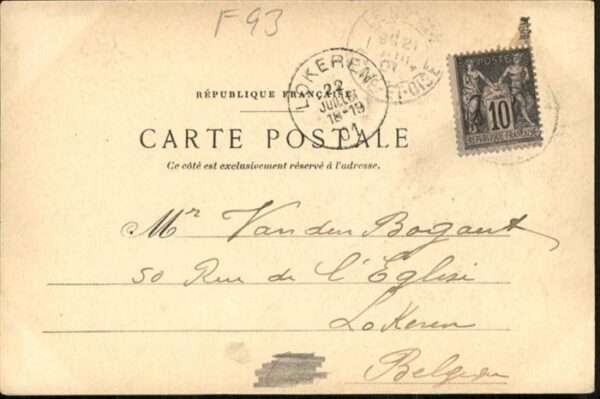 F93
LOKEREN
22
JUILLET
18-19
01
POSTE
10
REPUBLIQUE FRANÇAISE
RÉPUBLIQUE FRANÇAISE
CARTE POSTALE
Ce côté est exclusivement réservé à l'adresse.
Mr Van den Bogaert
50 Rue de l'Église
Lokeren
Belgique